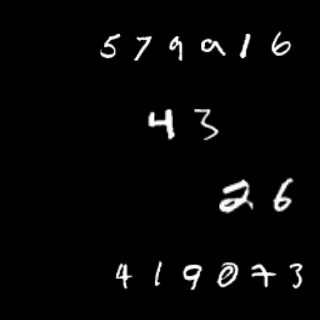 579916
43
26
419073